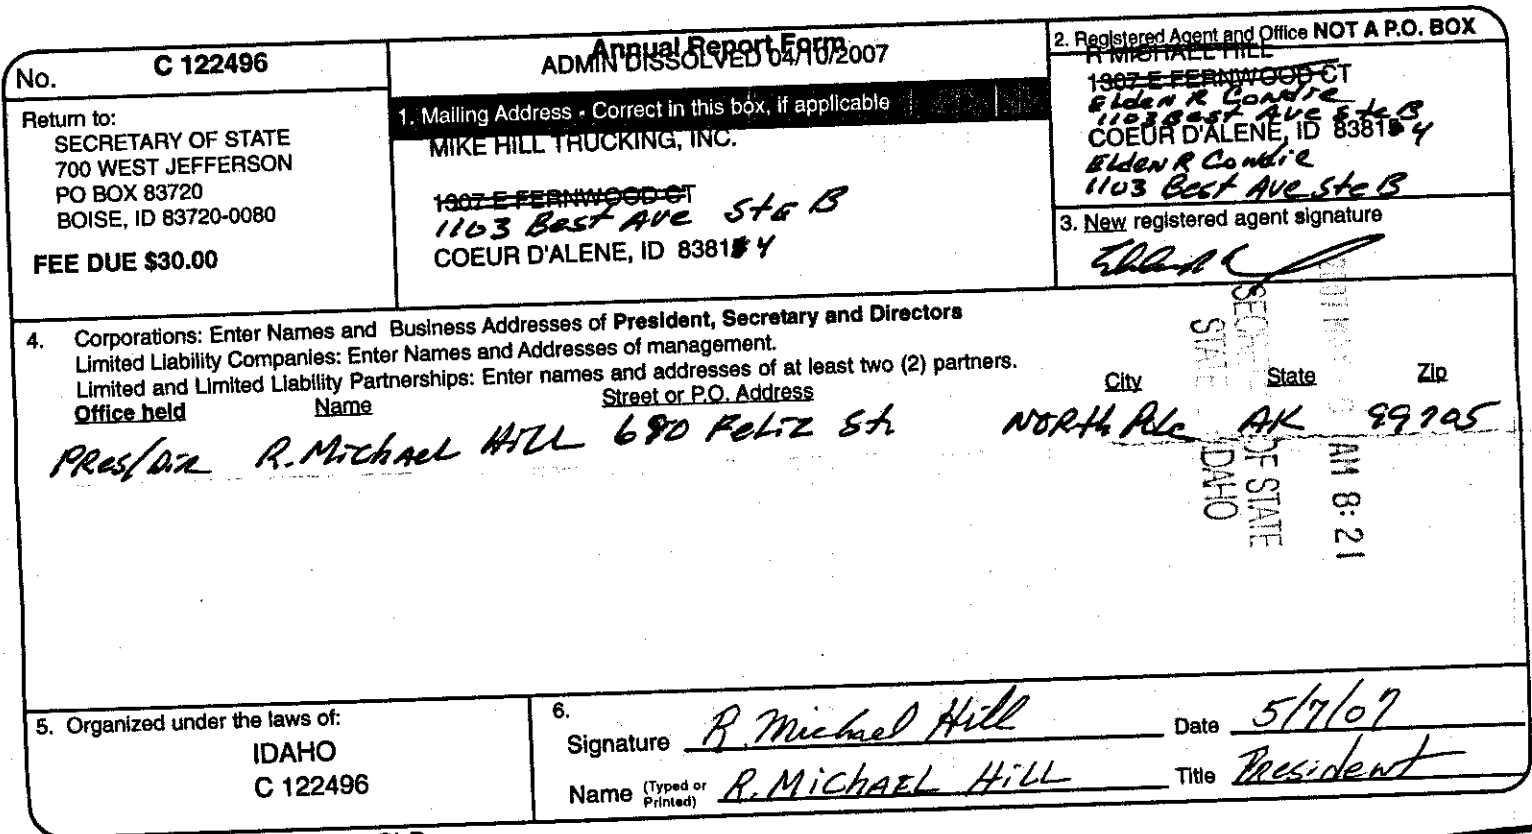 No. C 122496
Return to:
SECRETARY OF STATE
700 WEST JEFFERSON
PO BOX 83720
BOISE, ID 83720-0080
FEE DUE $30.00
Annual Report Form
ADMIN DISSOLVED 04/10/2007
1. Mailing Address - Correct in this box, if applicable
MIKE HILL TRUCKING, INC.
1307 E FERNWOOD CT
1103 Best Ave Ste B
COEUR D'ALENE, ID 8381 4
2. Registered Agent and Office NOT A P.O. BOX
R MICHALL HILL
1307 E FERNWOOD CT
Elden R Condie
1103 Best Ave Ste B
COEUR D'ALENE, ID 8381 4
Elden R Condie
1103 Best Ave Ste B
3. New registered agent signature
4. Corporations: Enter Names and Business Addresses of President, Secretary and Directors
Limited Liability Companies: Enter Names and Addresses of management.
Limited and Limited Liability Partnerships: Enter names and addresses of at least two (2) partners.
Office held Name Street or P.O. Address City State Zip
Pres/Dir R. Michael Hill 680 Feliz St. North Pole AK 99705
AM 8:21
SEC OF STATE
STATE IDAHO
5. Organized under the laws of:
IDAHO
C 122496
6.
Signature R. Michael Hill Date 5/7/07
Name (Typed or Printed) R. Michael Hill Title President